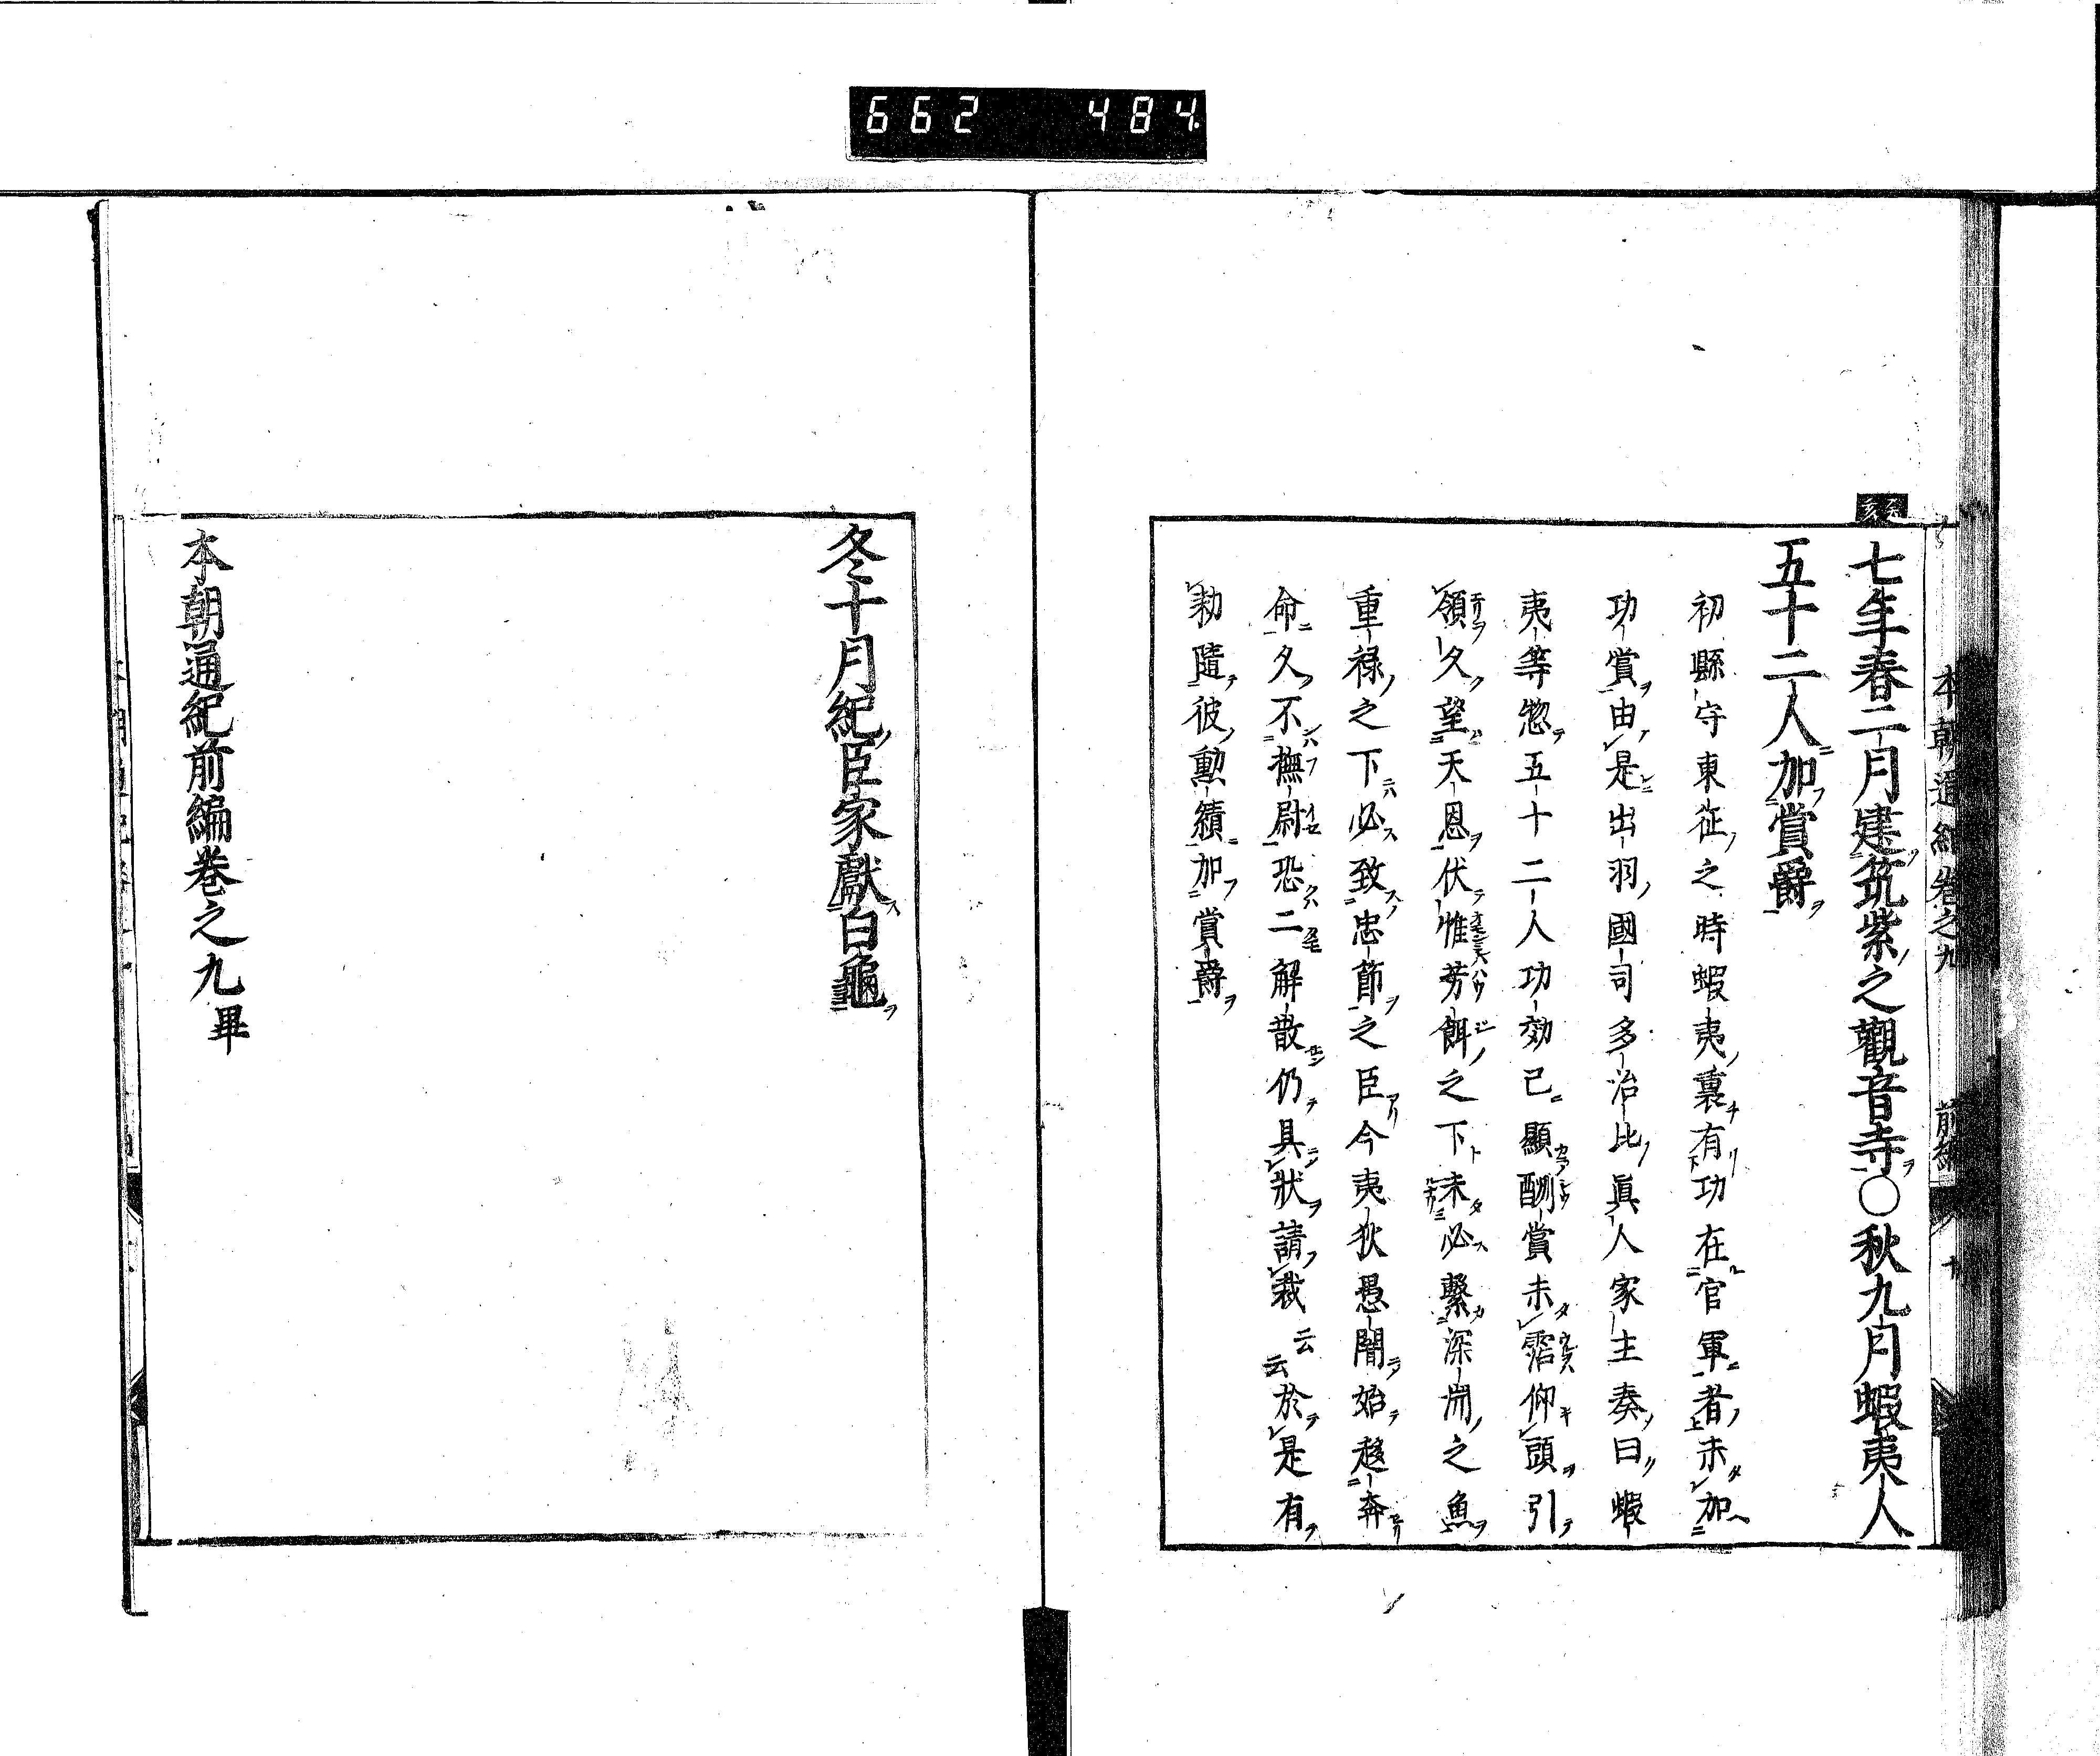 662 484
本朝通紀卷之九 前編 十
癸亥
七年春二月建筑紫之觀音寺○秋九月蝦夷人
五十二人加賞爵
初縣守東征之時蝦夷裏有功在官軍者未加
功賞由是出羽國司多治比眞人家主奏曰蝦
夷等惣五十二人功効已顯酬賞未霑仰頭引
領久望天恩伏惟芳餌之下未必繫深淵之魚
重禄之下必致忠節之臣今夷狄愚闇始趍奔
命久不撫尉恐二解散仍具狀請裁云云於是有
勅隨彼勲績加賞爵
冬十月紀臣家獻白龜
本朝通紀前編卷之九畢